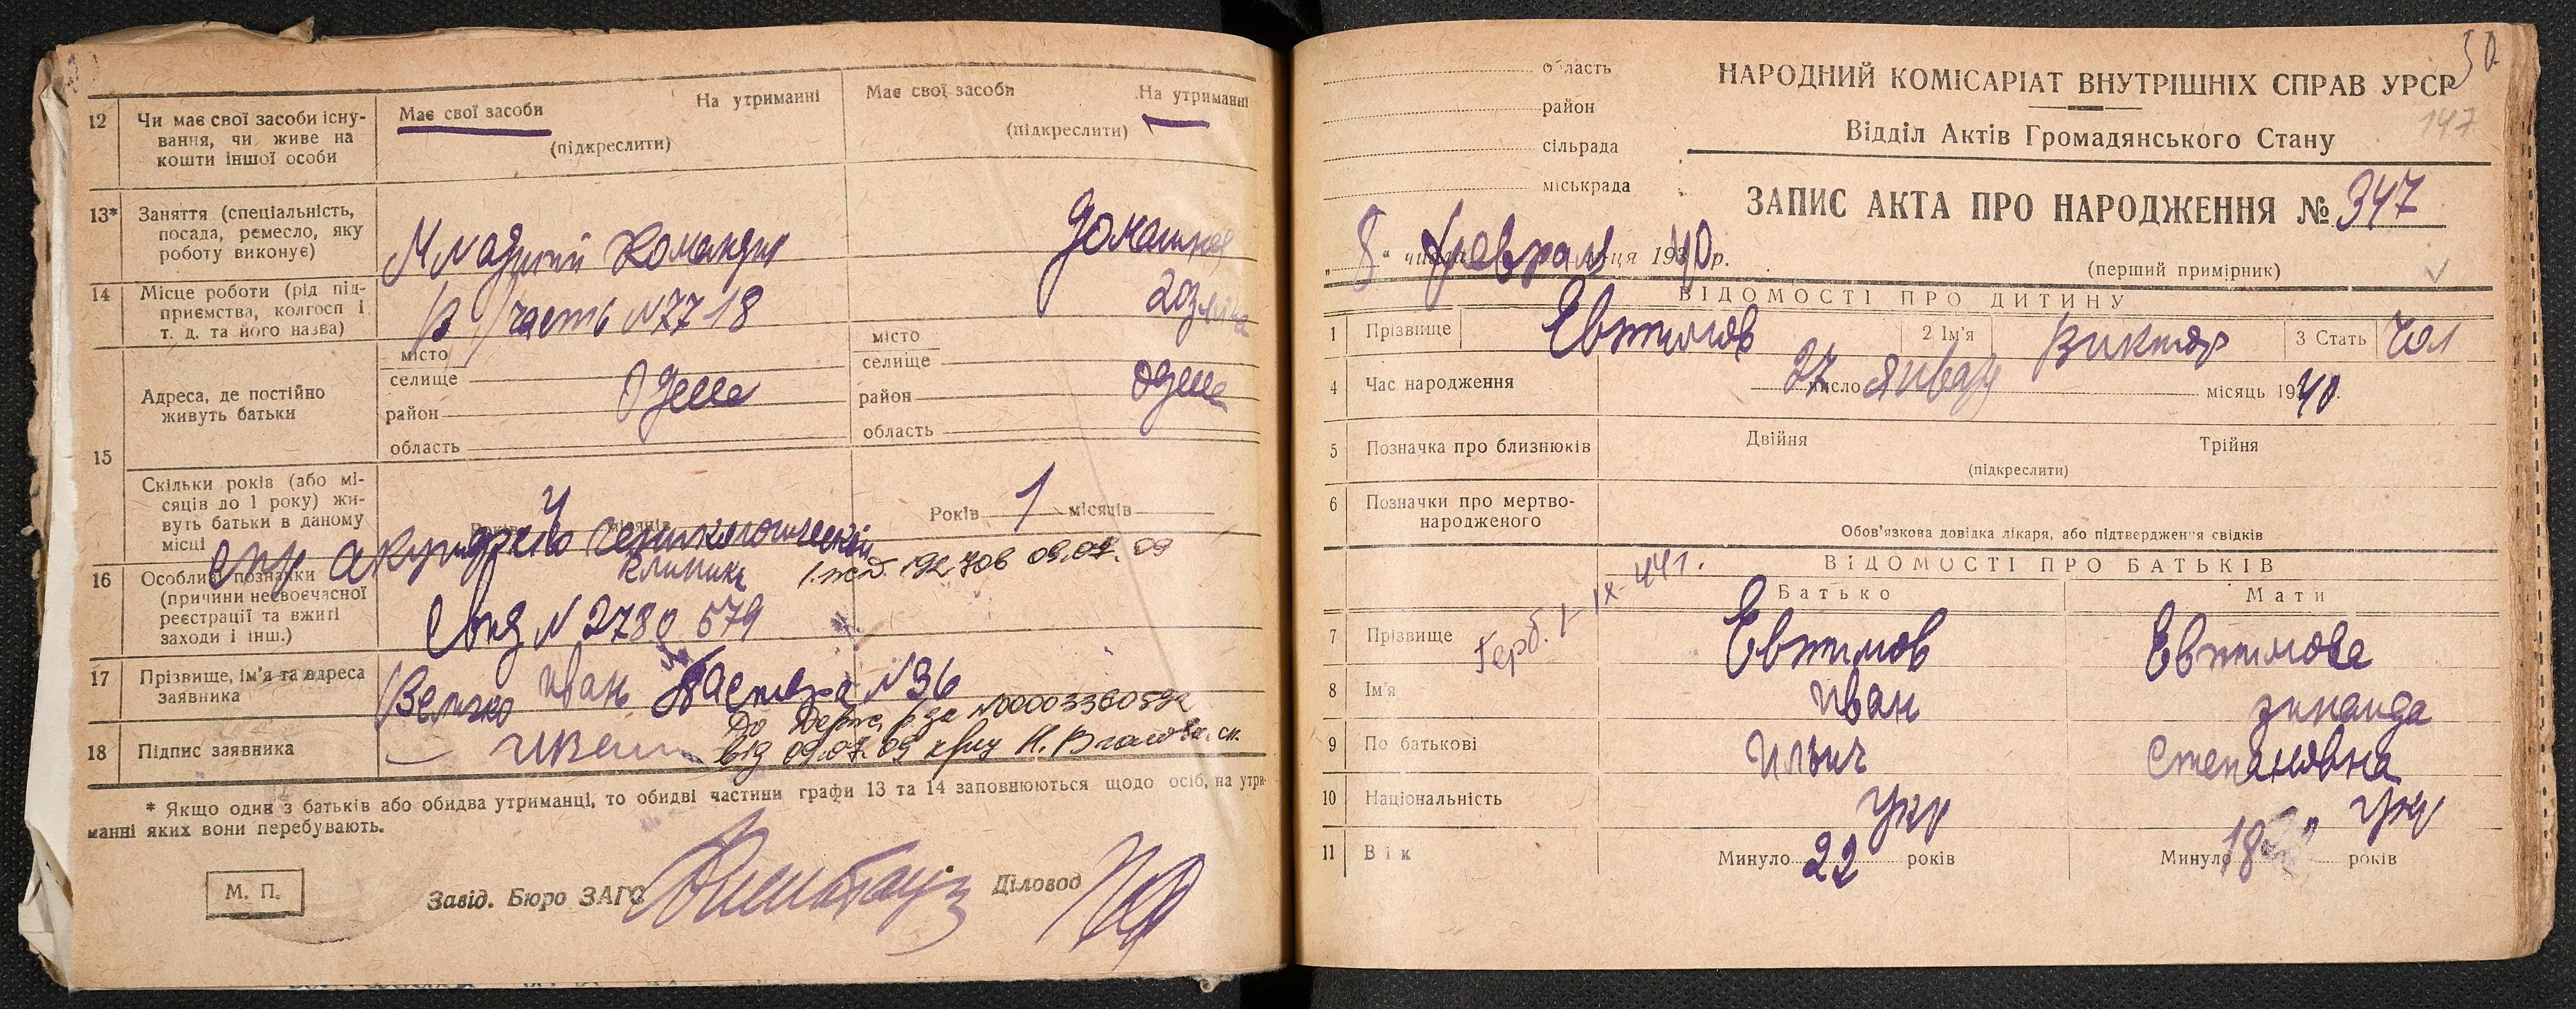 12 Чи має свої засоби існу-
вання, чи живе на
кошти іншої особи
Має свої засоби На утриманні
(підкреслити)
Має свої засоби На утриманні
(підкреслити)
13* Заняття (спеціальність,
посада, ремесло, яку
роботу виконує)
Младший командир
Домашняя
14 Місце роботи (рід під-
приємства, колгосп і
т. д. та його назва)
В/часть №7718
хозяйка
15 Адреса, де постійно
живуть батьки
місто
селище
район
область
Одесса
місто
селище
район
область
Одесса
Скільки років (або мі-
сяців до 1 року) жи-
вуть батьки в даному
місці
Років 4 місяців
Років 1 місяців
16 Особливі позначки
(причини несвоєчасної
реєстрації та вжиті
заходи і інш.)
спр акушерско гинекологической
клиники
09.07.09
Свид №2780579
17 Прізвище, ім'я та адреса
заявника
Иван Пастера №36
18 Підпис заявника
№00003360592
від 09.07.09
* Якщо один з батьків або обидва утриманці, то обидві частини графи 13 та 14 заповнюються щодо осіб, на утри-
манні яких вони перебувають.
М. П.
Завід. Бюро ЗАГС
Діловод
50
147
область
район
сільрада
міськрада
НАРОДНИЙ КОМІСАРІАТ ВНУТРІШНІХ СПРАВ УРСР
Відділ Актів Громадянського Стану
ЗАПИС АКТА ПРО НАРОДЖЕННЯ № 347
„8“ числа февраля місяця 1940 р.
(перший примірник)
ВІДОМОСТІ ПРО ДИТИНУ
1 Прізвище Евтимов 2 Ім'я Виктор 3 Стать чол
4 Час народження 27 число январ місяць 1940.
5 Позначка про близнюків Двійня Трійня
(підкреслити)
6 Позначки про мертво-
народженого
Обов'язкова довідка лікаря, або підтвердження свідків
ВІДОМОСТІ ПРО БАТЬКІВ
Батько Мати
Герб. 1-IX-44г.
7 Прізвище Евтимов Евтимова
8 Ім'я Иван Зинаида
9 По батькові Ильич Степановна
10 Національність Укр Укр
11 Вік Минуло 22 років Минуло 18 років